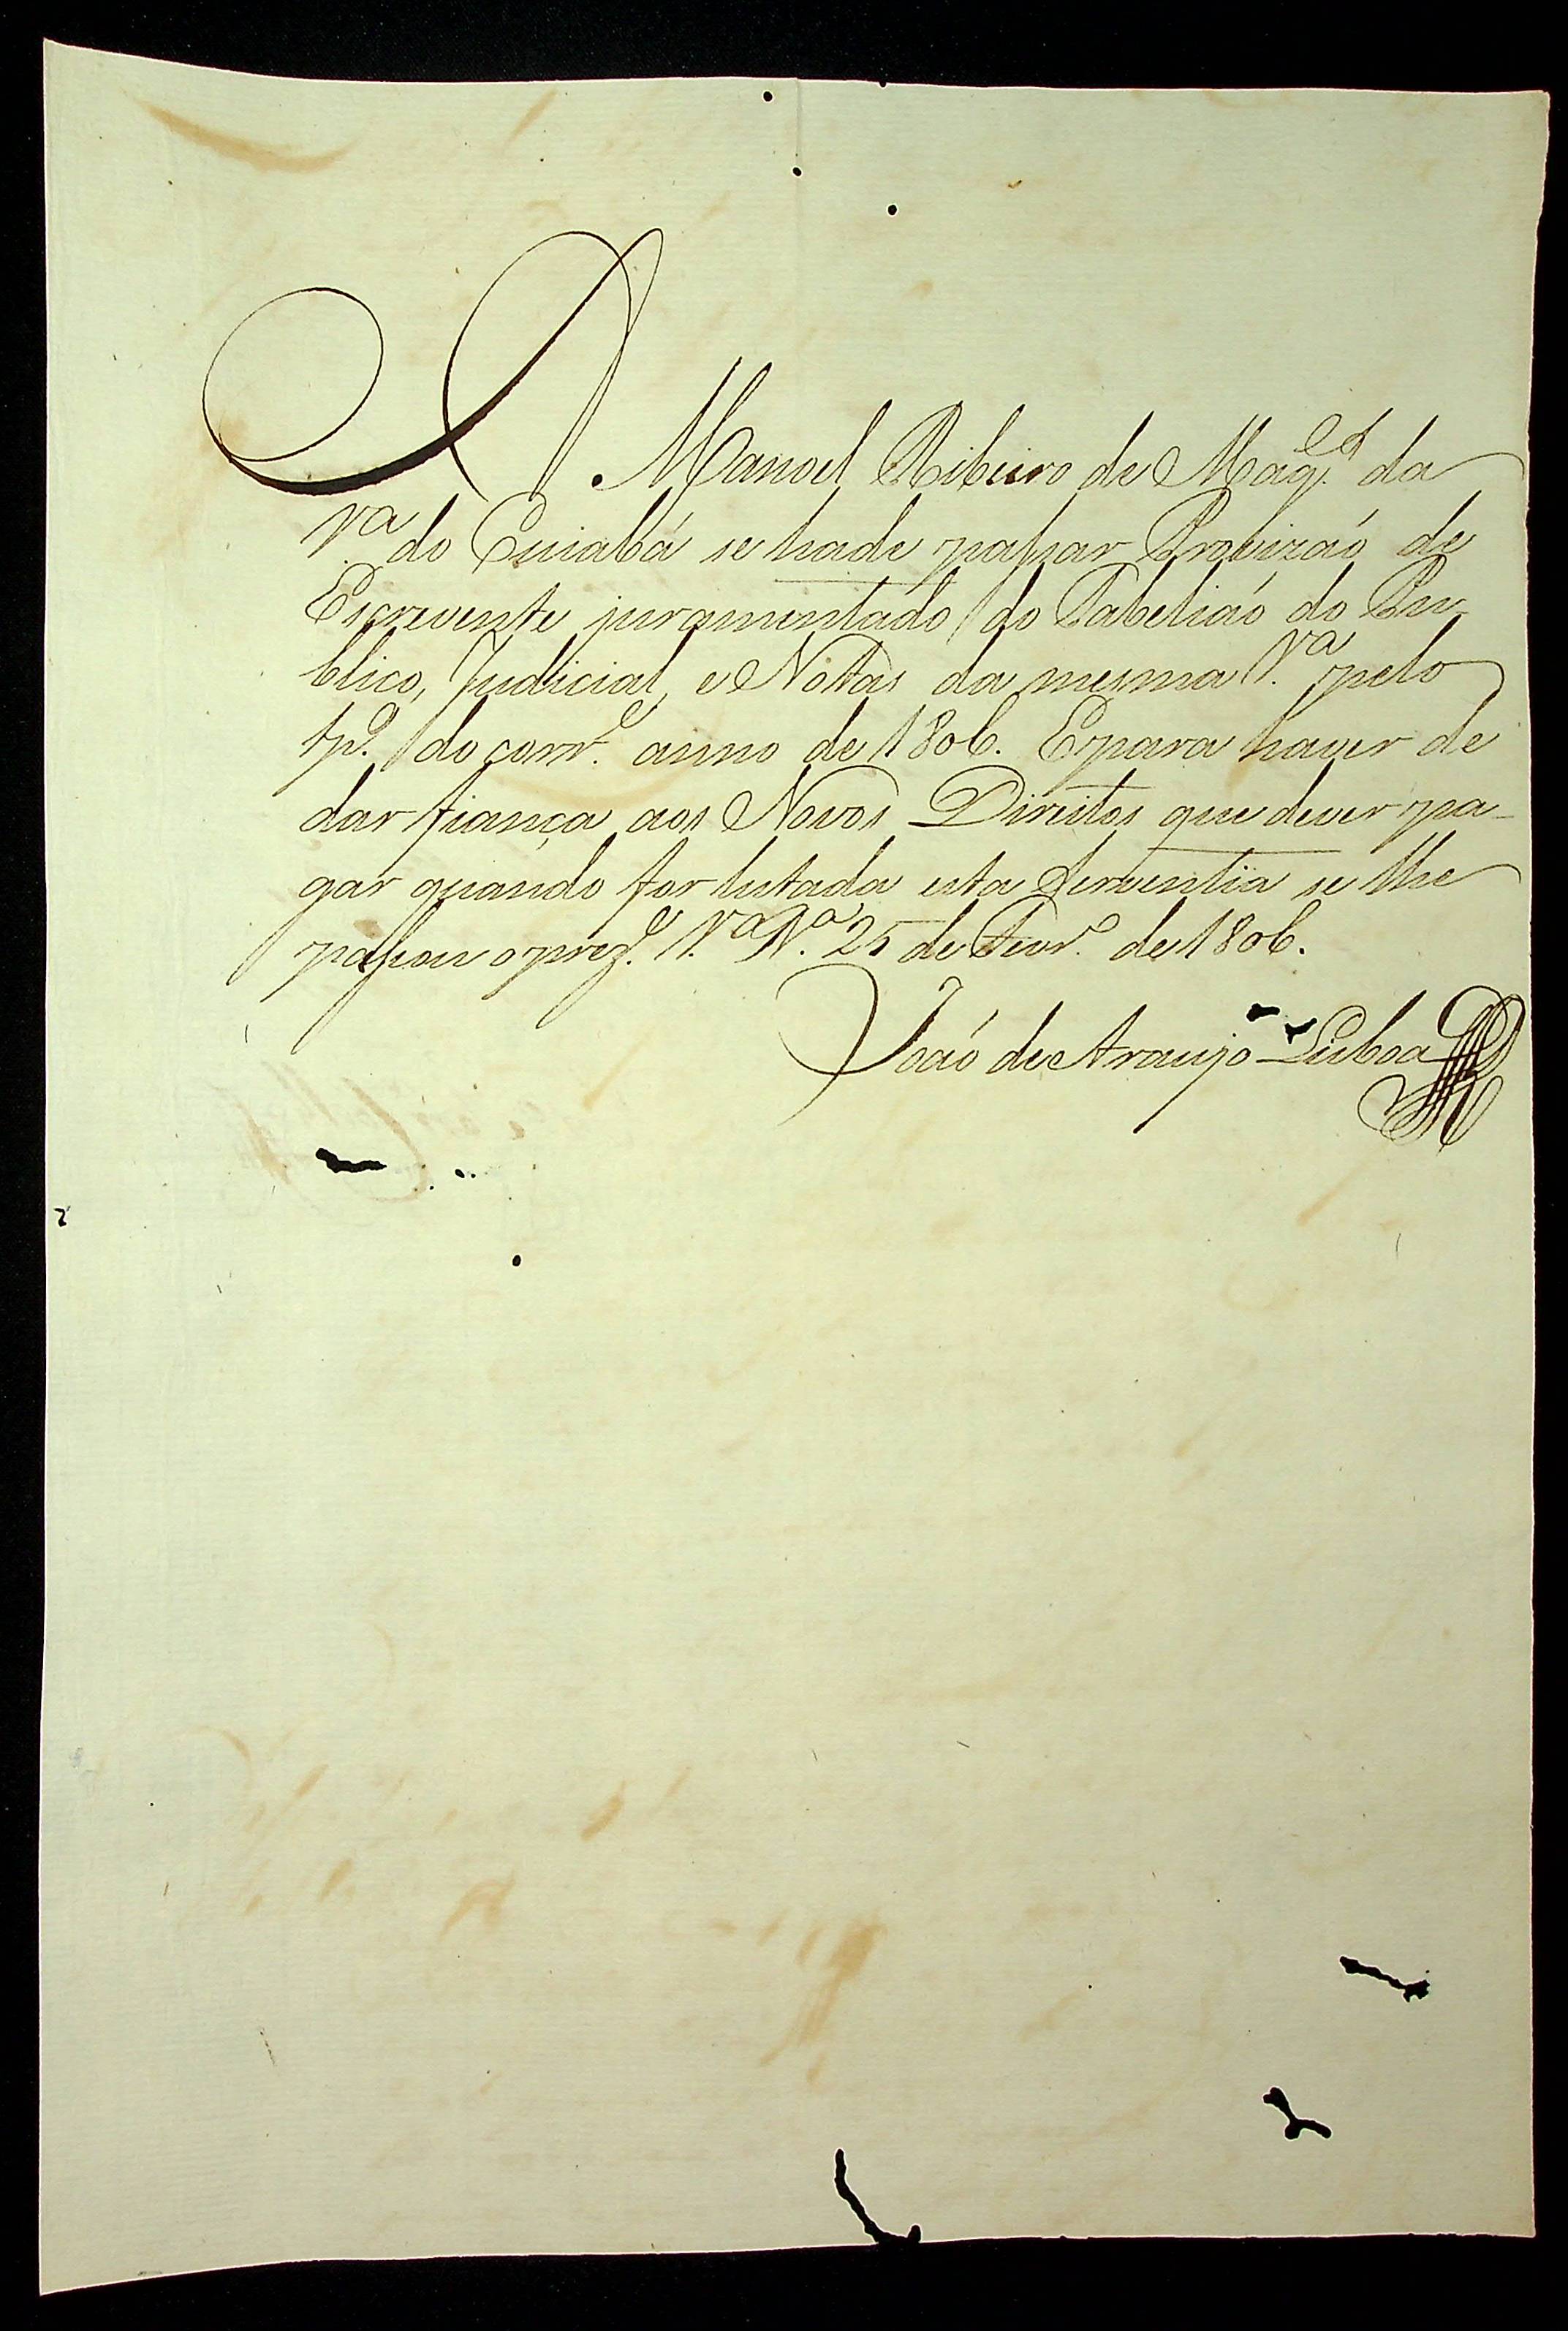 A Manoel Ribeiro de Mag.es da
V.a do Cuiabá se hade passar Provizaó de
Escrevente juramentado do Tabeliaó do Pu-
blico, Judicial, e Notas da mesma V.a pelo
tp.o do corr.e anno de 1806. E para haver de
dar fiança aos Novos Direitos que dever pa-
gar quando for lutada esta Serventia se lhe
passou o prez.e V.a N.a 25 de Fevr.o de 1806.
Joaó de Araujo Lisboa